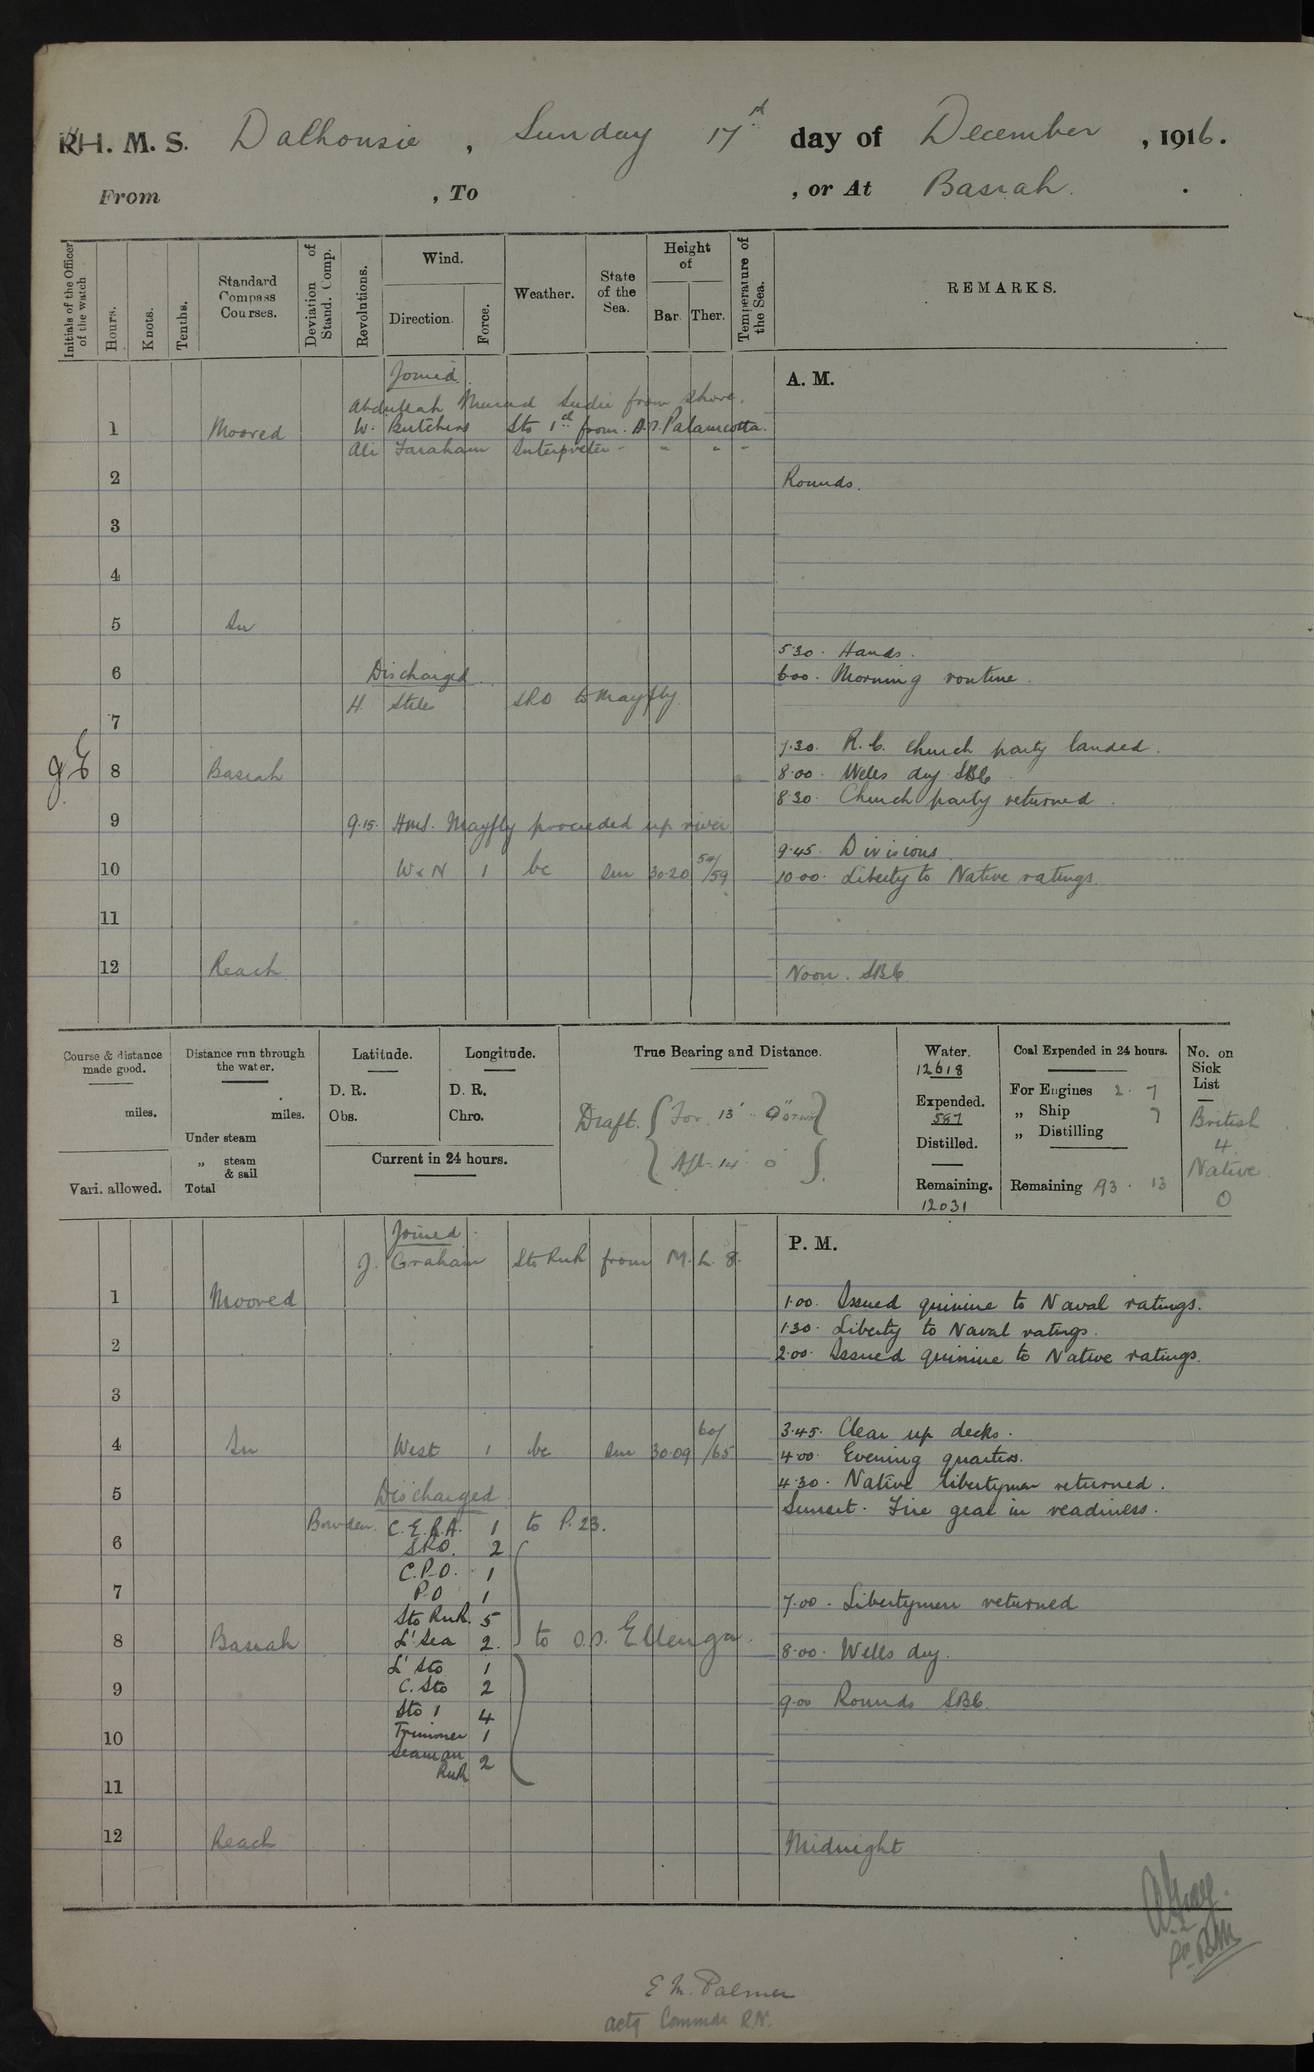 R.H. M. S. Dalhousie , Sunday 17th day of December , 1916.
From , To , or At Basrah.
Initials of the Officer of the watch
Hours.
Knots.
Tenths.
Standard Compass Courses.
Deviation of Stand. Comp.
Revolutions.
Wind.
Direction.
Force.
Weather.
State of the Sea.
Height of
Bar. Ther.
Temperature of the Sea.
REMARKS.
Joined.
A. M.
Abdullah Murad Seedie from Shore.
1 Moored W. Butchers Sto 1st from S.S. Palamcotta.
Ali Faraham Interpreter " " "
2 Rounds.
3
4
5 In
5.30. Hands.
6 Discharged. 6.00. Morning routine.
H. Stiles SRO to Mayfly.
7
7.30. R.C. Church party landed.
8 Basrah 8.00. Wells dry SBC
8.30. Church party returned.
9 9.15. H.M.S. Mayfly proceeded up river
9.45. Divisions
10 W x N 1 bc Sm 30.20 /59 10.00. Liberty to Native ratings.
11
12 Reach Noon. SBC
Course & distance made good.
miles.
Vari. allowed.
Distance run through the water.
miles.
Under steam
„ steam & sail
Total
Latitude.
D. R.
Obs.
Longitude.
D. R.
Chro.
Current in 24 hours.
True Bearing and Distance.
Draft. { For. 13' 9"
Aft. 14' 0" }
Water.
12618
Expended.
587
Distilled.
Remaining.
12031
Coal Expended in 24 hours.
For Engines 2 . 7
„ Ship 7
„ Distilling
Remaining 93 . 13
No. on Sick List
British
4
Native
0
Joined.
P. M.
J. Graham Sto RNR from M. L. 8.
1 Moored 1.00. Issued quinine to Naval ratings.
1.30. Liberty to Naval ratings.
2 2.00. Issued quinine to Native ratings.
3
3.45. Clear up decks.
4 In West 1 bc Sm 30.09 60/65 4.00. Evening quarters.
4.30. Native libertymen returned.
5 Discharged. Sunset. Fire gear in readiness.
Bowden. C.E.R.A. 1 to P.23.
6 SRO. 2
C.P.O. 1
7 P.O 1
7.00. Libertymen returned
Sto RNR. 5
8 Basrah L' Sea 2. to S.S. Ellenga. 8.00. Wells dry.
L' Sto 1
9 C. Sto 2 9.00 Rounds SBC.
Sto 1 4
10 Trimmer 1
Seaman RNR 2
11
12 Reach Midnight
E M. Palmer
actg Commdr R.N.